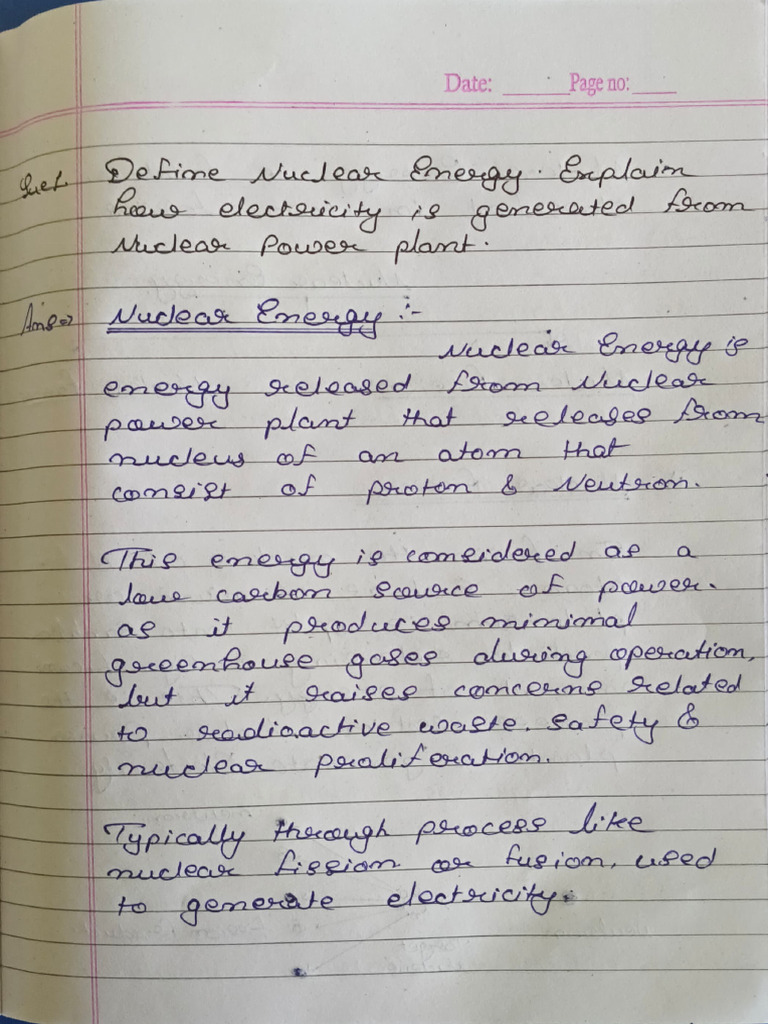 Date: ______ Page no: ____
Ques. Define Nuclear Energy. Explain
how electricity is generated from
Nuclear Power plant.
Ans⇒ Nuclear Energy :-
Nuclear Energy is
energy released from Nuclear
power plant that releases from
nucleus of an atom that
consist of proton & Neutron.
This energy is considered as a
low carbon source of power.
as it produces minimal
greenhouse gases during operation,
but it raises concerns related
to radioactive waste, safety &
nuclear proliferation.
Typically through process like
nuclear fission or fusion, used
to generate electricity.